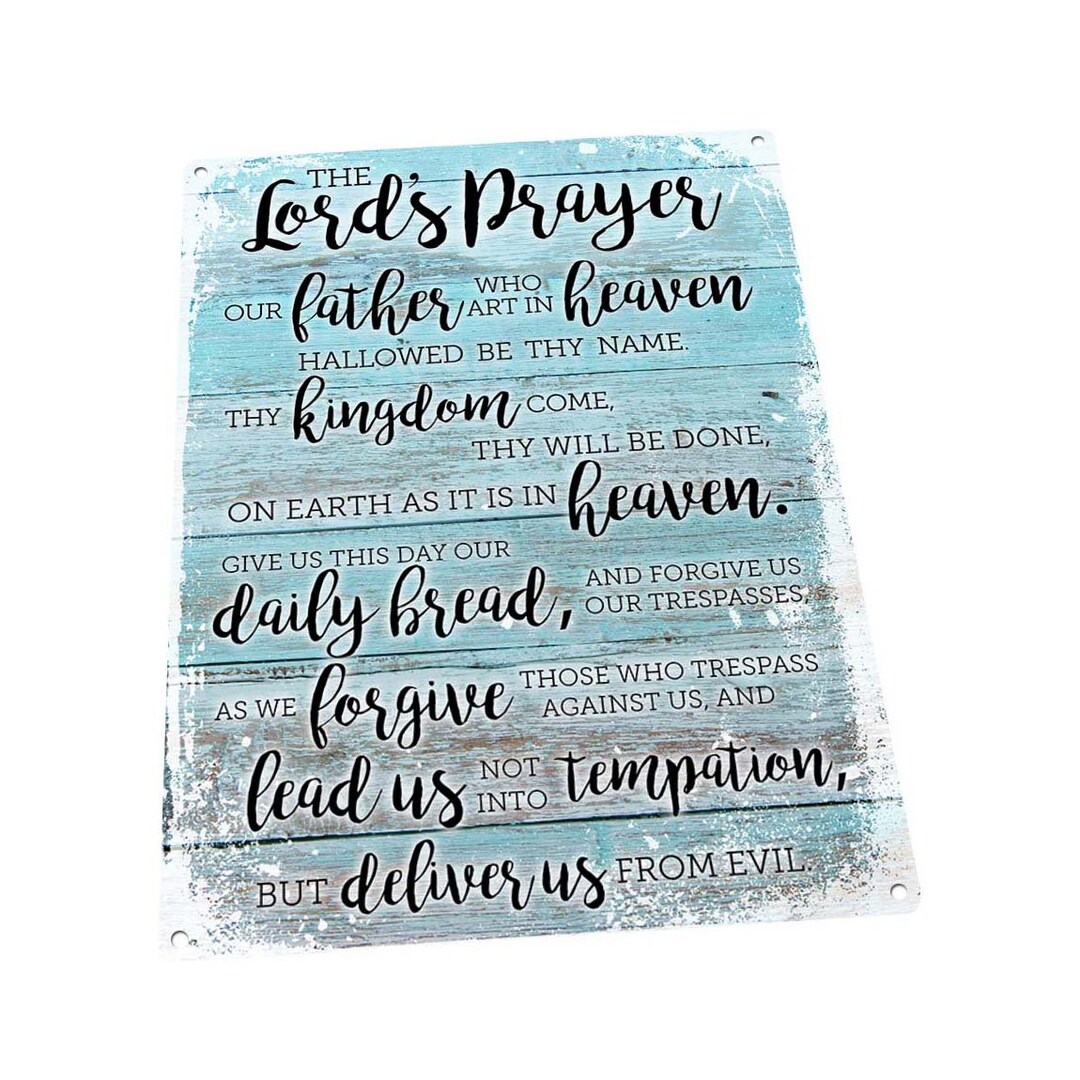 THE
Lord's Prayer
OUR father WHO ART IN heaven
HALLOWED BE THY NAME.
THY kingdom COME,
THY WILL BE DONE,
ON EARTH AS IT IS IN heaven.
GIVE US THIS DAY OUR
daily bread, AND FORGIVE US OUR TRESPASSES,
AS WE forgive THOSE WHO TRESPASS AGAINST US, AND
lead us NOT INTO tempation,
BUT deliver us FROM EVIL.